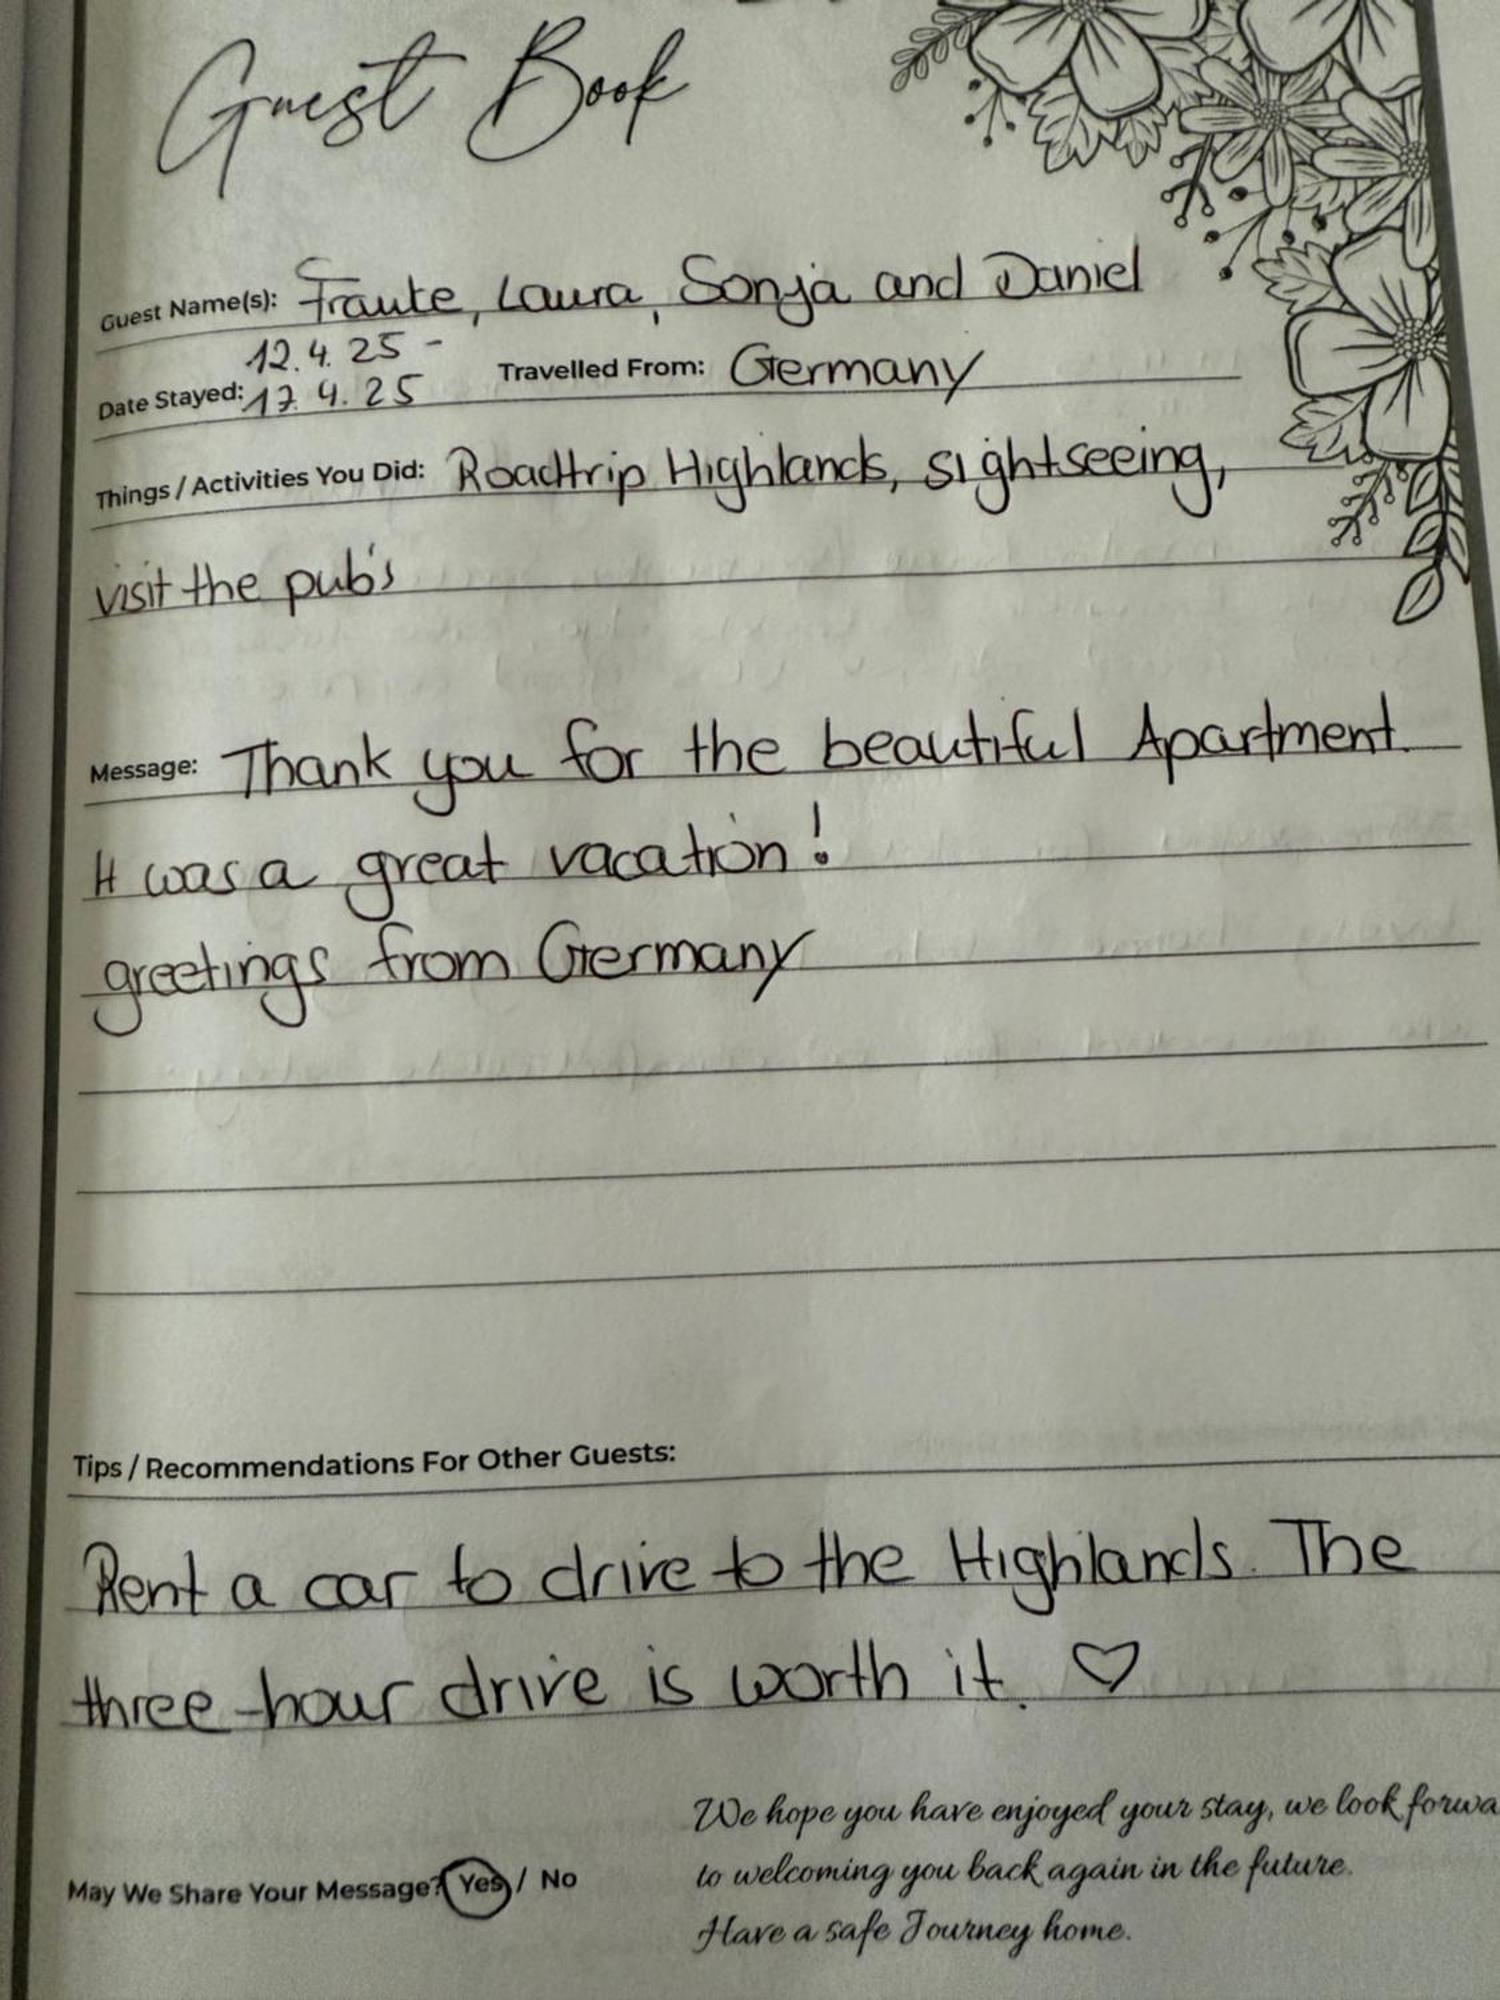 Guest Book
Guest Name(s): Traute, Laura, Sonja and Daniel
12.4.25 -
Date Stayed: 17.4.25 Travelled From: Germany
Things / Activities You Did: Roadtrip Highlands, sightseeing,
visit the pub's
Message: Thank you for the beautiful Apartment.
It was a great vacation!
greetings from Germany
Tips / Recommendations For Other Guests:
Rent a car to drive to the Highlands. The
three-hour drive is worth it. ♡
We hope you have enjoyed your stay, we look forwa
to welcoming you back again in the future.
May We Share Your Message? Yes / No
Have a safe Journey home.